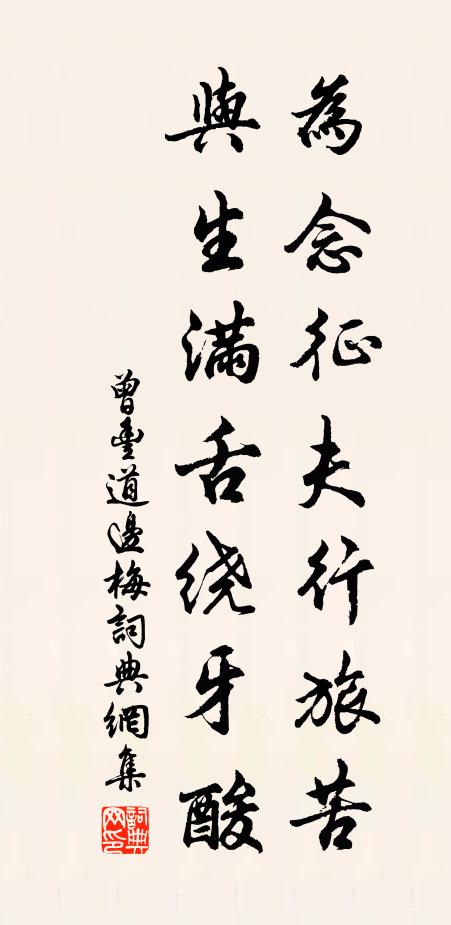 為念征夫行旅苦
與生滿舌绕牙酸
曾豐道邊梅詞典網集
詞典網印